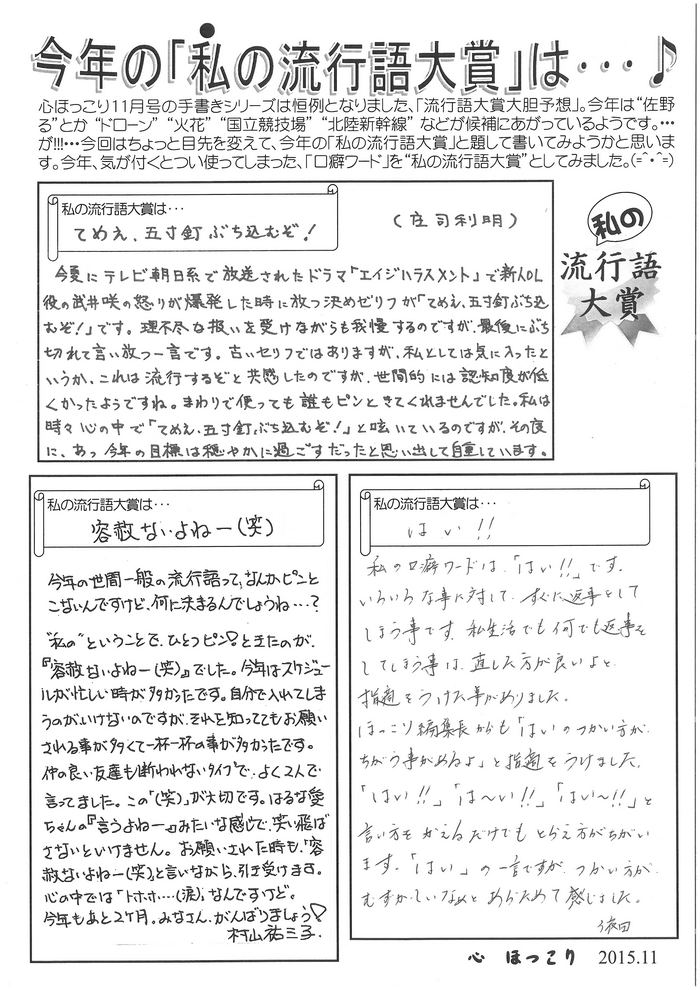 今年の「私の流行語大賞」は・・・♪
心ほっこり11月号の手書きシリーズは恒例となりました、「流行語大賞大胆予想」。今年は“佐野
る”とか “ドローン” “火花” “国立競技場” “北陸新幹線” などが候補にあがっているようです。…
が!!!…今回はちょっと目先を変えて、今年の「私の流行語大賞」と題して書いてみようかと思いま
す。今年、気が付くとつい使ってしまった、「口癖ワード」を“私の流行語大賞”としてみました。(=^・^=)
私の流行語大賞は・・・
てめえ、五寸釘ぶち込むぞ!
(庄司利明)
今夏にテレビ朝日系で放送されたドラマ「エイジハラスメント」で新人OL
役の武井咲の怒りが爆発した時に放つ決めゼリフが「てめえ、五寸釘ぶち込
むぞ!」です。理不尽な扱いを受けながらも我慢するのですが、最後にぶち
切れて言い放つ一言です。古いセリフではありますが、私としては気に入ったと
いうか、これは流行するぞと共感したのですが、世間的には認知度が低
くかったようですね。まわりで使っても誰もピンときてくれませんでした。私は
時々心の中で「てめえ、五寸釘ぶち込むぞ!」と呟いているのですが、その度
に、あっ今年の目標は穏やかに過ごすだったと思い出して自重しています。
私の
流行語
大賞
私の流行語大賞は・・・
容赦ないよねー(笑)
今年の世間一般の流行語って、なんかピンと
こないんですけど、何に決まるんでしょうね…?
“私の”ということで、ひとつピン!ときたのが、
『容赦ないよねー(笑)』でした。今年はスケジュー
ルが忙しい時が多かったです。自分で入れてしま
うのがいけないのですが、それを知っててもお願い
される事が多くて一杯一杯の事が多かったです。
仲の良い友達も断われないタイプで、よく2人で
言ってました。この「(笑)」が大切です。はるな愛
ちゃんの『言うよねー』みたいな感じで、笑い飛ば
さないといけません。お願いされた時も、「容
赦ないよねー(笑)」と言いながら、引き受けます。
心の中では「トホホ…(涙)」なんですけど。
今年もあと2ヶ月。みなさん、がんばりましょう!
村山祐三子
私の流行語大賞は・・・
はい!!
私の口癖ワードは、「はい!!」です。
いろいろな事に対して、すぐに返事をして
しまう事です。私生活でも何でも返事を
してしまう事は、直した方が良いよと
指摘をうけた事がありました。
ほっこり編集長からも「はいのつかい方が、
ちがう事があるよ」と指摘をうけました。
「はい!!」「は〜い!!」「はい〜!!」と
言い方をかえるだけでもとらえ方がちがい
ます。「はい」の一言ですが、つかい方が、
むずかしいなぁとあらためて感じました。
依田
心 ほっこり 2015.11